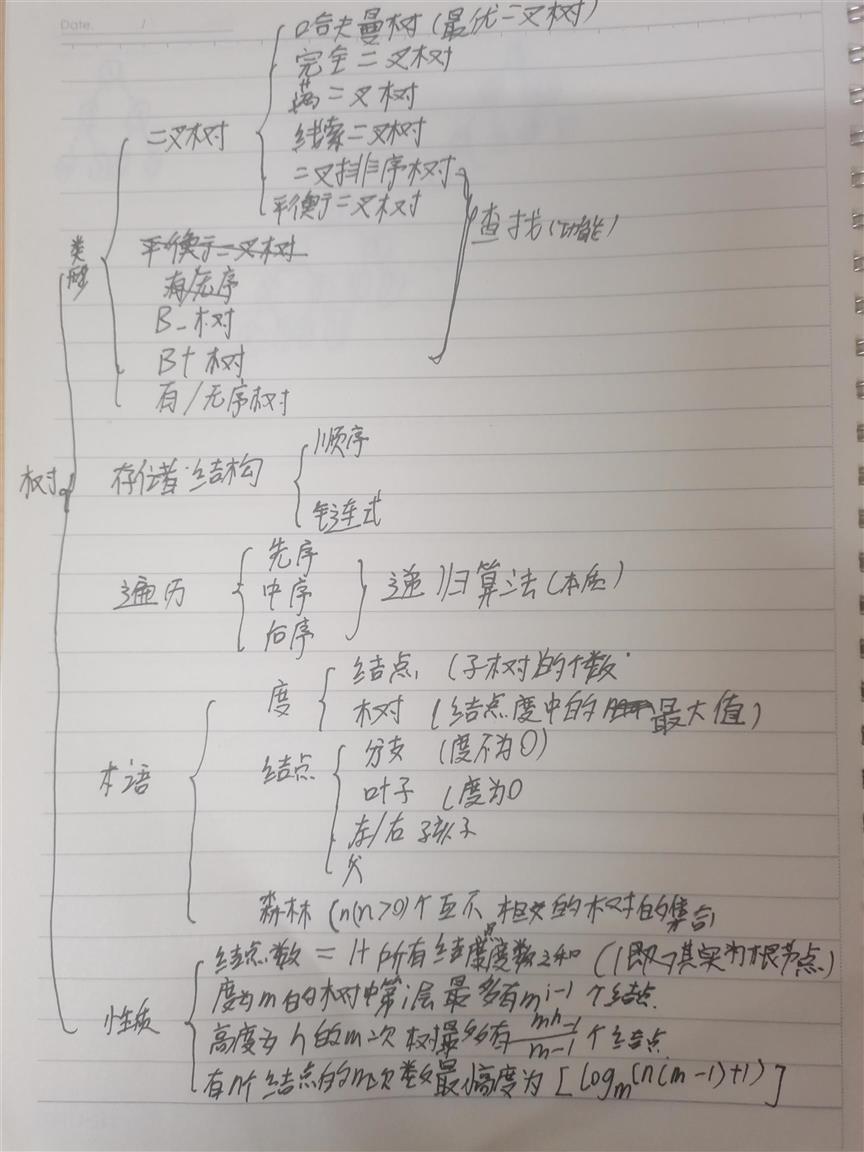 Date.
哈夫曼树(最优二叉树)
完全二叉树
满二叉树
二叉树
线索二叉树
二叉排序树
平衡于二叉树
查找(功能)
类型
平衡于二叉树
有/无序
B-树
B+树
有/无序树
树
存储结构
顺序
链式
遍历
先序
中序
后序
递归算法(本质)
术语
度
结点 (子树的个数
树 (结点度中的 最大值)
结点
分支 (度不为0)
叶子 (度为0
左/右孩子
父
森林 (n(n>0)个互不相交的树的集合
性质
结点数 = 1+所有结点度数之和 (1即→其实为根节点)
度为m的树中第i层最多有m^{i-1}个结点
高度为h的m次树最多有\frac{m^h-1}{m-1}个结点
有n个结点的m次数最小高度为[log_m(n(m-1)+1)]